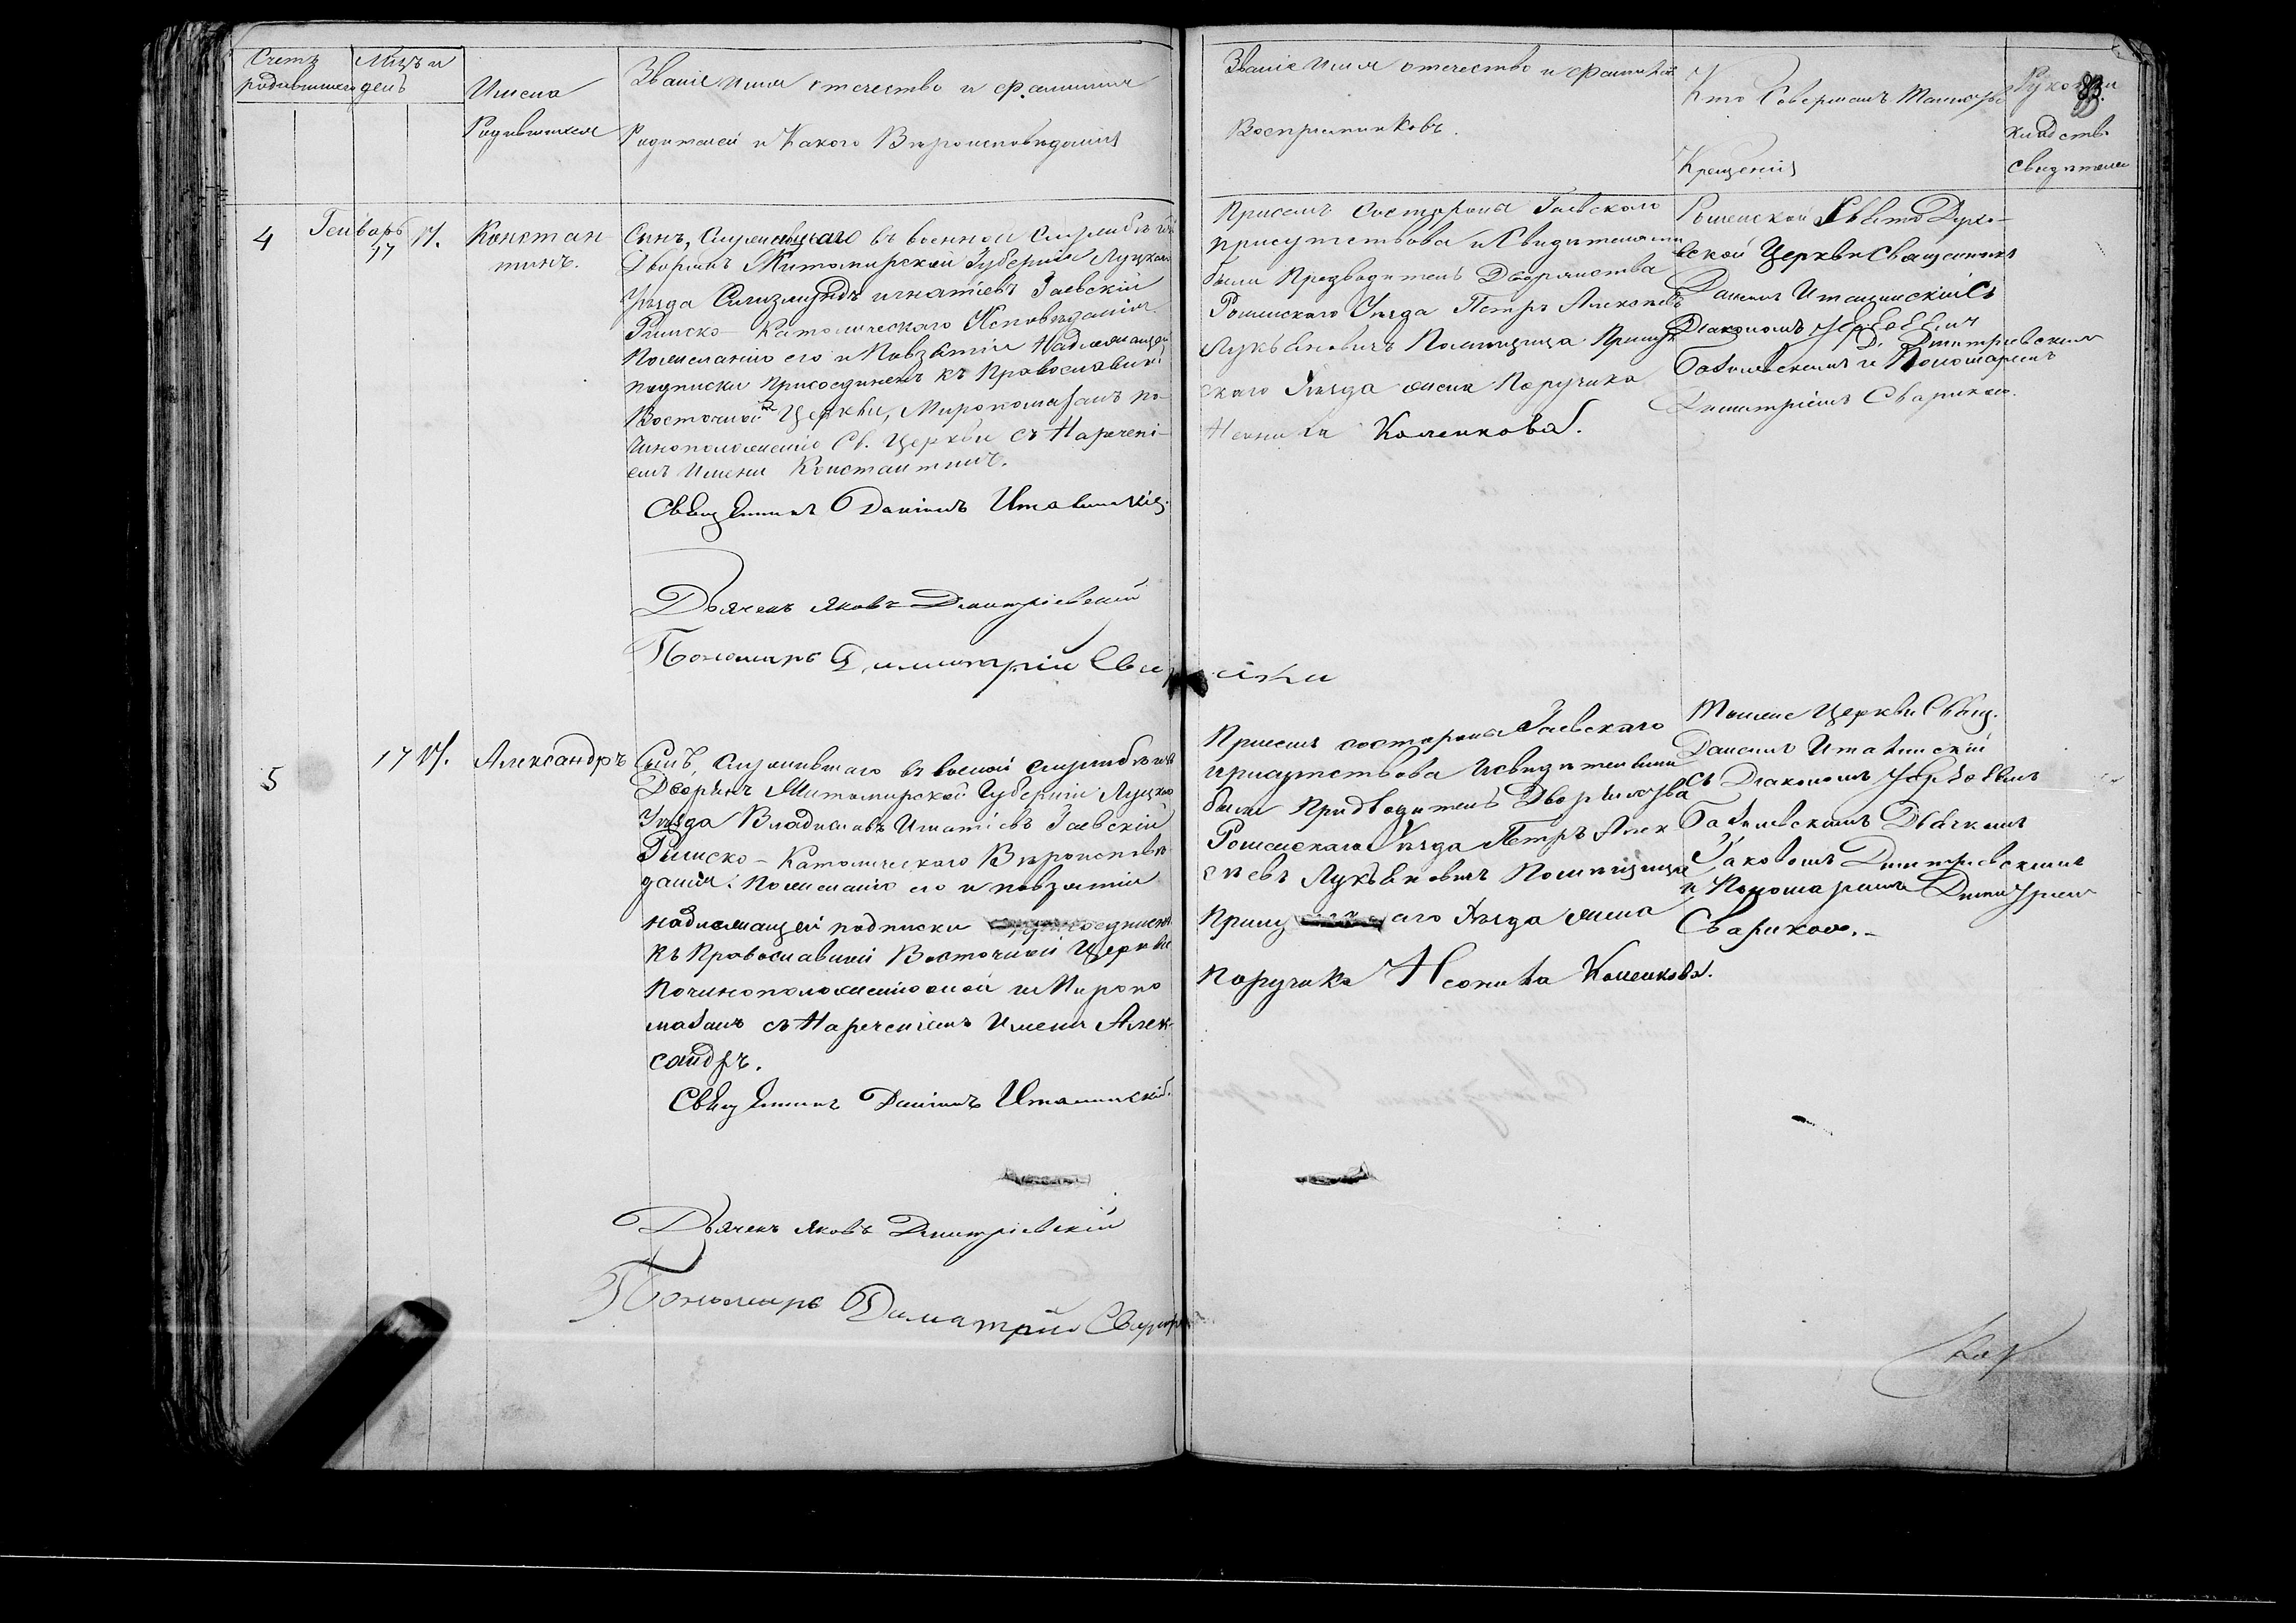 Счетъ
родившихся
Мѣсяцъ и
день
Имена
Родившихся
Званіе имя отчество и фамилия
Родителей и Какого Вѣроисповѣданія
Званіе имя отечество и фамилія
Воспріемниковъ.
Кто Совершалъ Таинство
Крещенія
Рукопри
кладство
свидѣтелей
83.
4
Генварь
17 17.
Констан
тинъ.
Сынъ, Служившаго въ военной Службѣ изъ
Дворянъ Житомирской Губерніи Луцкаго
Уѣзда Сигизмундъ игнатіевъ Гаевскій
Римско-Католическаго Исповѣданія.
Пожеланію его и Повзятіи Надлежащей
подписки присоединенъ къ Православной
Восточной Церкви, Миропомазанъ по
Чиноположенію Св. Церкви съ Нарѣчені-
емъ Имени Константинъ.
Священникъ Даніилъ
Дьячекъ Яковъ Дмитріевскій
Пономарь Димитрій
Присемъ состороны Гаевскаго
присутствова и Свидѣтелями
были Предводитель Дворянства
Роменскаго Уѣзда Петръ Алексѣевъ
Лукьяновичъ Помѣщица Прилуц
скаго Уѣзда жена Поручика
Коленкова.
Роменской Свято Духо-
вской Церкви Священникъ
Даніилъ
Діакономъ
Дмитріевскимъ
и Пономаремъ
Димитріемъ Сварикою.
5
17 17.
Александръ
Сынъ, Служившаго въ военой службѣ изъ
Дворянъ Житомирской Губерніи Луцкаго
Уѣзда Владиславъ Игнатіевъ Гаевскій
Римско-Католическаго Вѣроисповѣ
данія. Пожеланію его и повзятіи
надлежащей подписки присоединенъ
къ Православной Восточной Церкви
Починоположенію оной и Миропо
мазанъ съ Нарѣченіемъ Имени Алек-
сандръ.
Священникъ Даніилъ
Дьячекъ Яковъ Дмитріевскій
Пономарь Димитрій
Присемъ состороны Гаевскаго
присутствова и свидѣтелями
были Предводитель Дворянства
Роменскаго Уѣзда Петръ Алек
сѣевъ Лукьяновичъ Помѣщица
Прилуц аго Уѣзда жена
Поручика Коленкова.
Тоиже Церкви Свящ.
Даніилъ
съ Діакономъ
Дьячкомъ
Іаковомъ Дмитріевскимъ
и Пономаремъ Димитріем
Сварикою.-